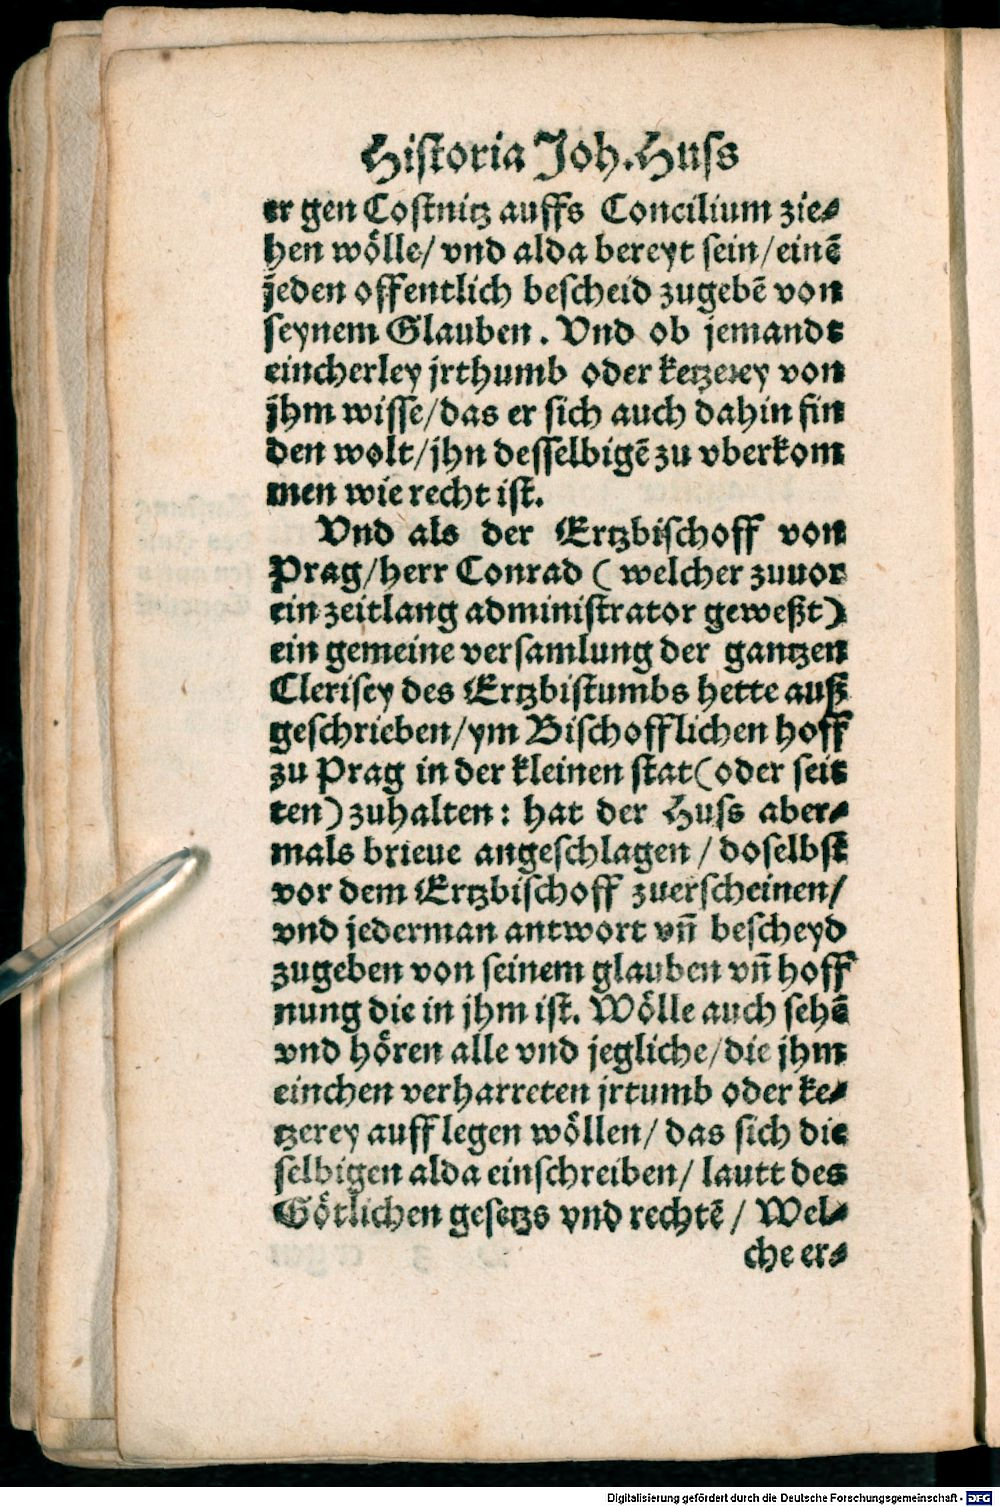 Historia Joh. Huss
er gen Costnitz auffs Concilium zie⸗
hen wölle/ vnd alda bereyt sein/ einē
jeden offentlich bescheid zugebē von
seynem Glauben. Vnd ob jemandt
eincherley jrthumb oder ketzerey von
jhm wisse/das er sich auch dahin fin
den wolt/jhn desselbigē zu vberkom
men wie recht ist.
Vnd als der Ertzbischoff von
Prag/herr Conrad ( welcher zuuor
ein zeitlang administrator geweßt)
ein gemeine versamlung der gantzen
Clerisey des Ertzbistumbs hette auß
geschrieben/ym Bischofflichen hoff
zu Prag in der kleinen stat(oder seit
ten) zuhalten: hat der Huss aber⸗
mals brieue angeschlagen / doselbst
vor dem Ertzbischoff zuerscheinen/
vnd jederman antwort vn̄ bescheyd
zugeben von seinem glauben vn̄ hoff
nung die in jhm ist. Wölle auch sehē
vnd hören alle vnd jegliche/die jhm
einchen verharreten jrtumb oder ke⸗
tzerey auff legen wöllen/ das sich die
selbigen alda einschreiben/ lautt des
Götlichen gesetzs vnd rechtē / Wel⸗
che er⸗
Digitalisierung gefördert durch die Deutsche Forschungsgemeinschaft - DFG